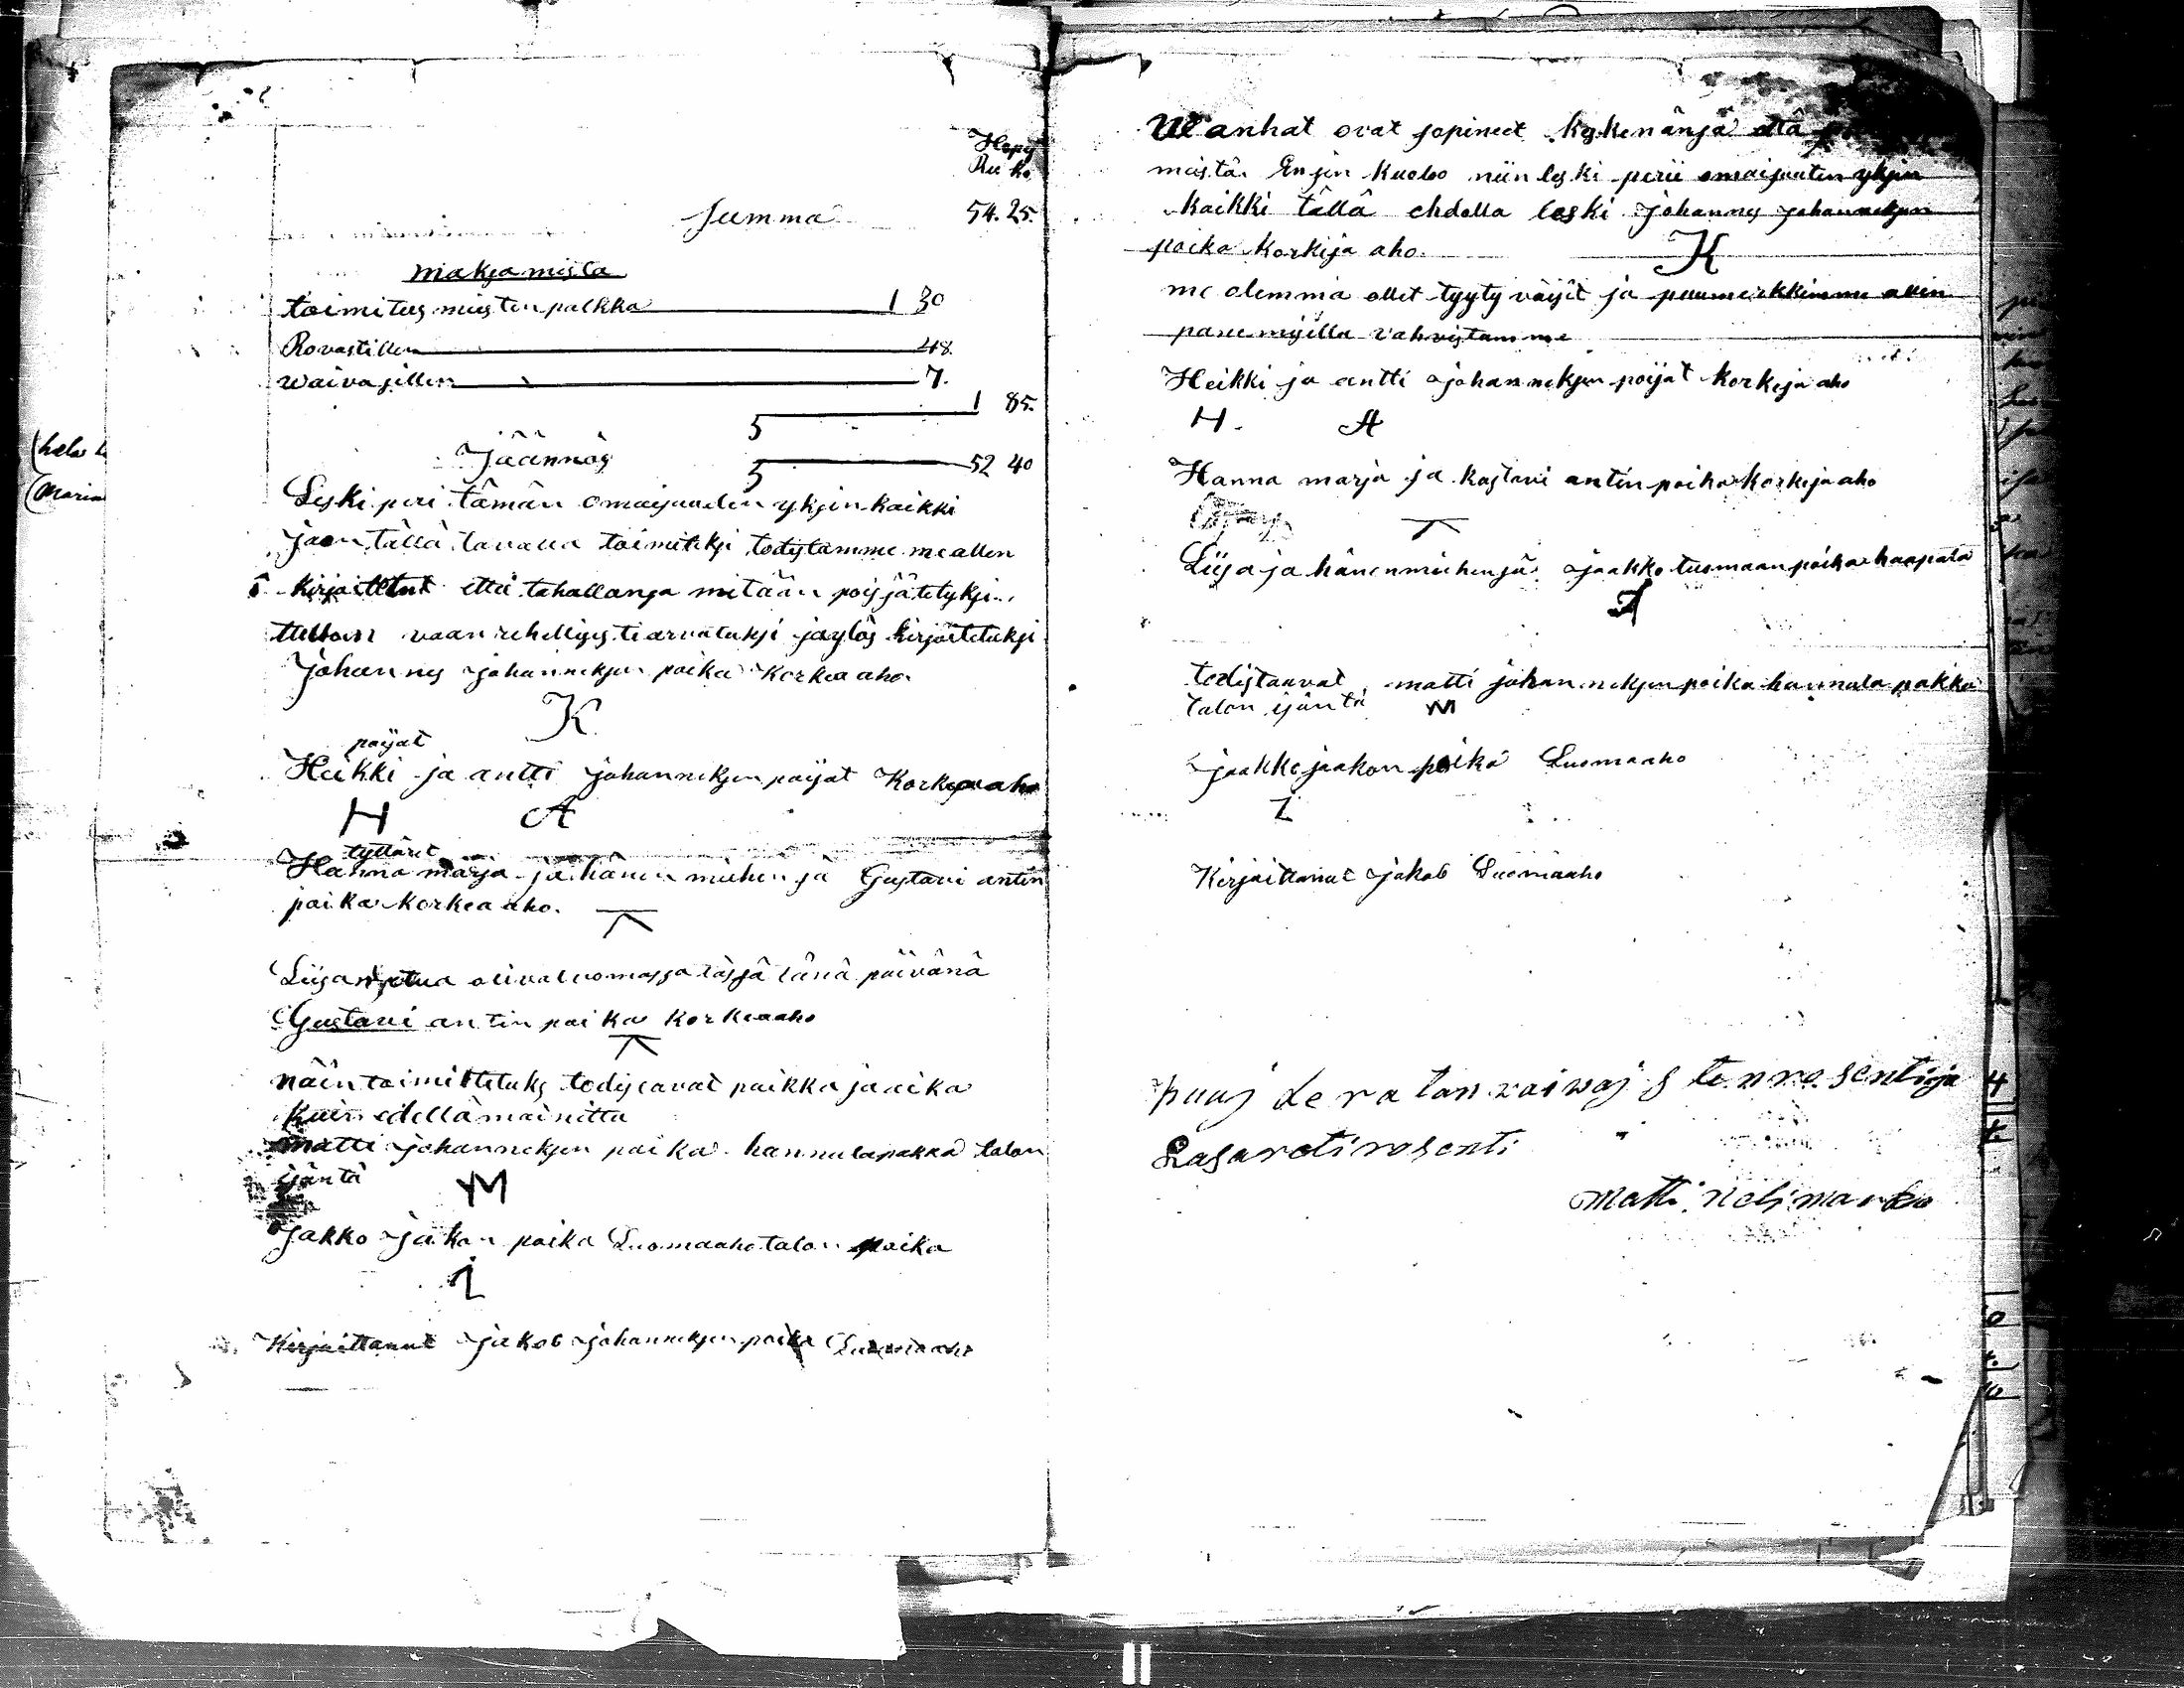 Hopi
Ru ko.
Summa 54.25.
Maksamista
toimitus miesten palkka 1 30
Rovastillen 48.
Waivasillen 7.
1 85.
5
Jäännös 52 40
5
Leski peri tämän omaisuuden yksin kaikki
Jaon tällä tavalla toimiteksi todistamme me allen
kirjoittetut että tahallansa mitään pois jätetyksi
vaan rehellisesti arvatuksi ja ylös kirjoitetuksi
Johannes johanneksen poika Korkea aho
K
poijat
Heikki ja antti johanneksen poijat Korkea aho
H A
tyttäret
Hanna marja ja hänen miehensä Gustavi antin
poika korkea aho.
Liisa olivat omassa tässä tänä päivänä
Gustavi antin poika korkeaaho
näin toimitetuks todistavat paikka ja aika
kuin edellä mainittu
Matti johanneksen poika hannulapakka talon
isäntä
M
Jakko jakon poika Luomaaho talon poika
Kirjoittanut jakob johanneksen poika Luomaaho
Wanhat ovat sopineet keskenänsä että
meistä. Ensin kuoloo niin leski perii omaisuuten yksin
kaikki tällä ehdolla leski Johannes johanneksen
poika korkija aho.
K
me olemma ollet tyytyväiset ja puumerkkimme allen
panemisilla vahvistamme
Heikki ja antti johanneksen poijat korkeja aho
H. A
Hanna marja ja kustavi antin poika korkeja aho
Liisa ja hänen miehensä jaakko tuomaan poika haapala
todistaavat matti johanneksen poika hannula pakka
talon isäntä M
jaakko jaakon poika Luomaaho
Kirjoittanut jakob Luomaaho
Lasareti rosenti
Matti Nelimarkka
(hela
(Maria